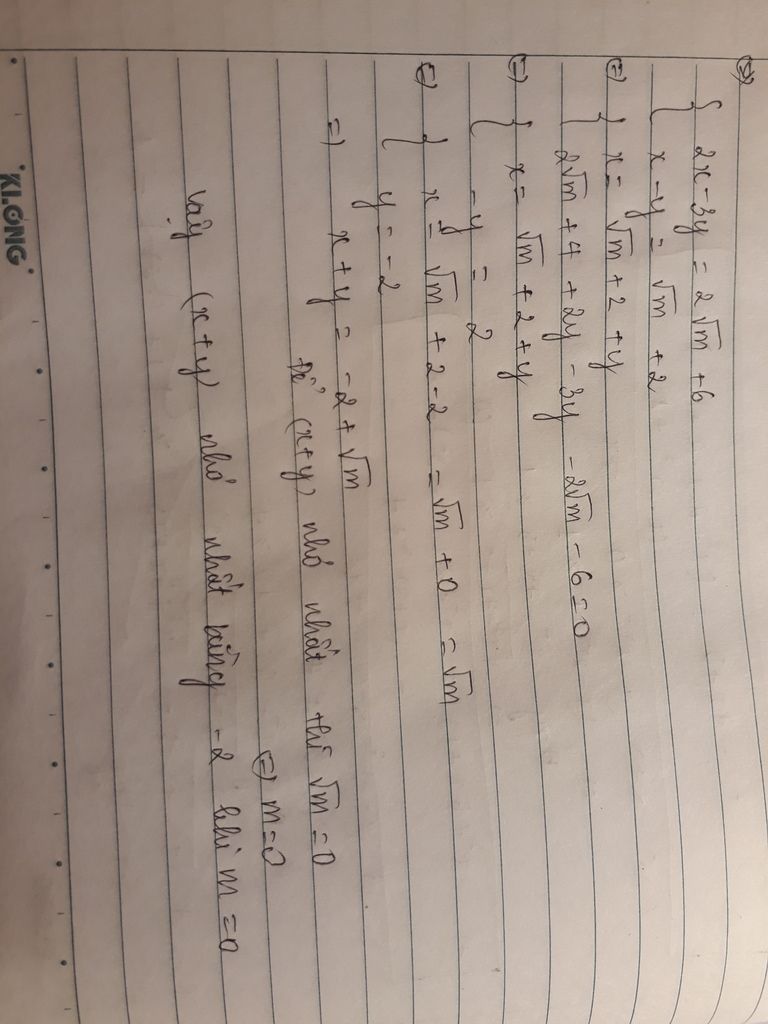 ⇔ { 2x - 3y = 2√m + 6
x - y = √m + 2
⇔ { x = √m + 2 + y
2√m + 4 + 2y - 3y - 2√m - 6 = 0
⇔ { x = √m + 2 + y
-y = 2
⇔ { x = √m + 2 - 2 = √m + 0 = √m
y = -2
=) x + y = -2 + √m
Để (x+y) nhỏ nhất thì √m = 0
⇔ m = 0
Vậy (x+y) nhỏ nhất bằng -2 khi m = 0
KLONG